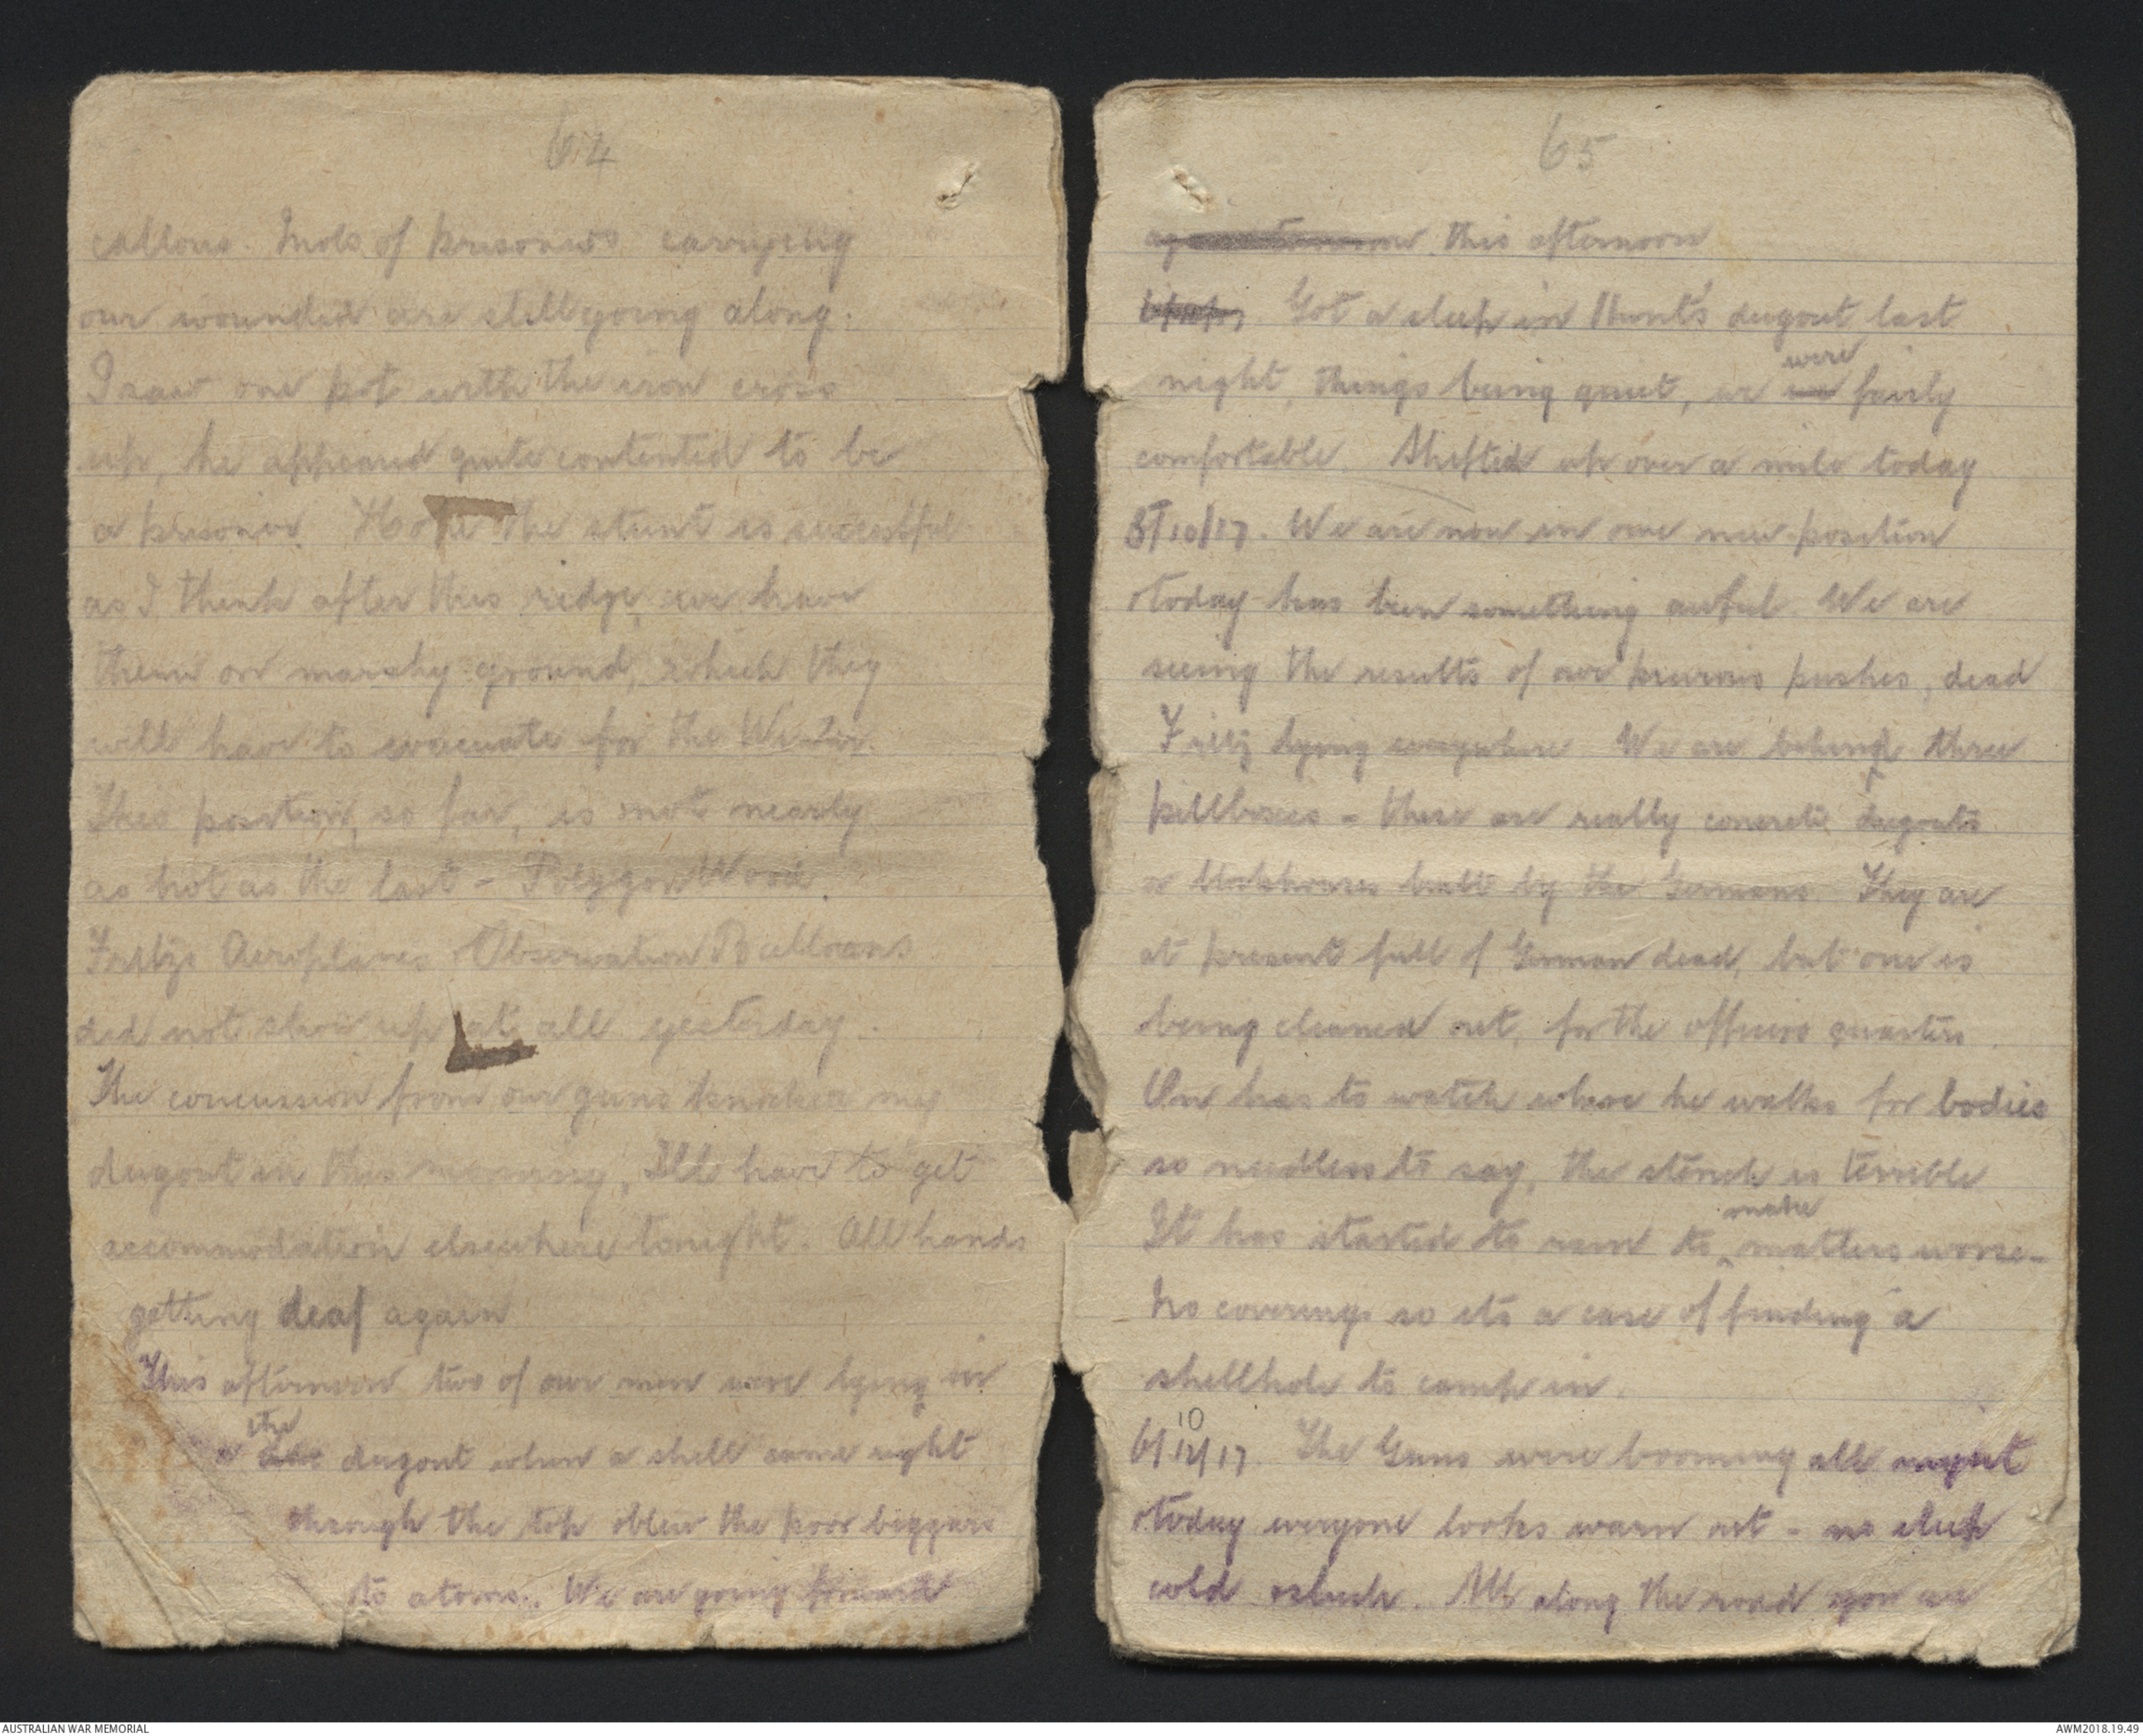 64
callous. Mobs of prisoners carrying
our wounded are still going along.
I saw one pot with the iron cross
up, he appeared quite contented to be
a prisoner. Hope the stunt is successful
as I think after this ridge, we have
them on marshy ground, which they
will have to evacuate for the Winter.
This position, so far, is not nearly
as hot as the last - Polygon Wood.
Fritzs Aeroplanes & Observation Balloons
did not show up at all yesterday.
The concussion from our guns knocked my
dugout in this morning, Ill have to get
accommodation elsewhere tonight. All hands
getting deaf again
This afternoon two of our men were lying in
the
a dugout when a shell came right
through the top & blew the poor beggars
to atoms. We are going forward
65
this afternoon
Got a sleep in Hunt's dugout last
were
night, things being quiet, we fairly
comfortable. Shifted up over a mile today
5/10/17. We are now in our new position
& today has been something awful. We are
seeing the results of our previous pushes, dead
Fritz lying everywhere. We are behind three
pillboxes - these are really concrete dugouts
or blockhouses built by the Germans. They are
at present full of German dead, but one is
being cleaned out, for the officers quarters.
One has to watch where he walks for bodies
so needless to say, the stench is terrible
make
It has started to rain to matters worse -
No coverings so its a case of finding a
shellhole to camp in.
10
6/12/17. The Guns were booming all night
& today everyone looks warn out - no sleep
cold & slush. All along the road you see
AUSTRALIAN WAR MEMORIAL
AWM2018.19.49